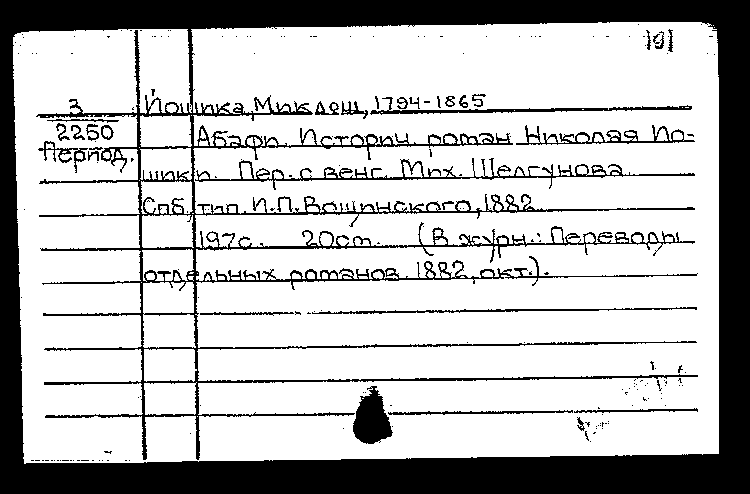 101
3 Йошика, Миклош, 1794-1865
2250 Абафи. Историч. роман Николая Йо-
Период. шики. Пер. с венг. Мих. Шелгунова
Спб, тип. И.П. Вощинского, 1882
197с. 20см. (В журн.: Переводы
отдельных романов. 1882, окт.).